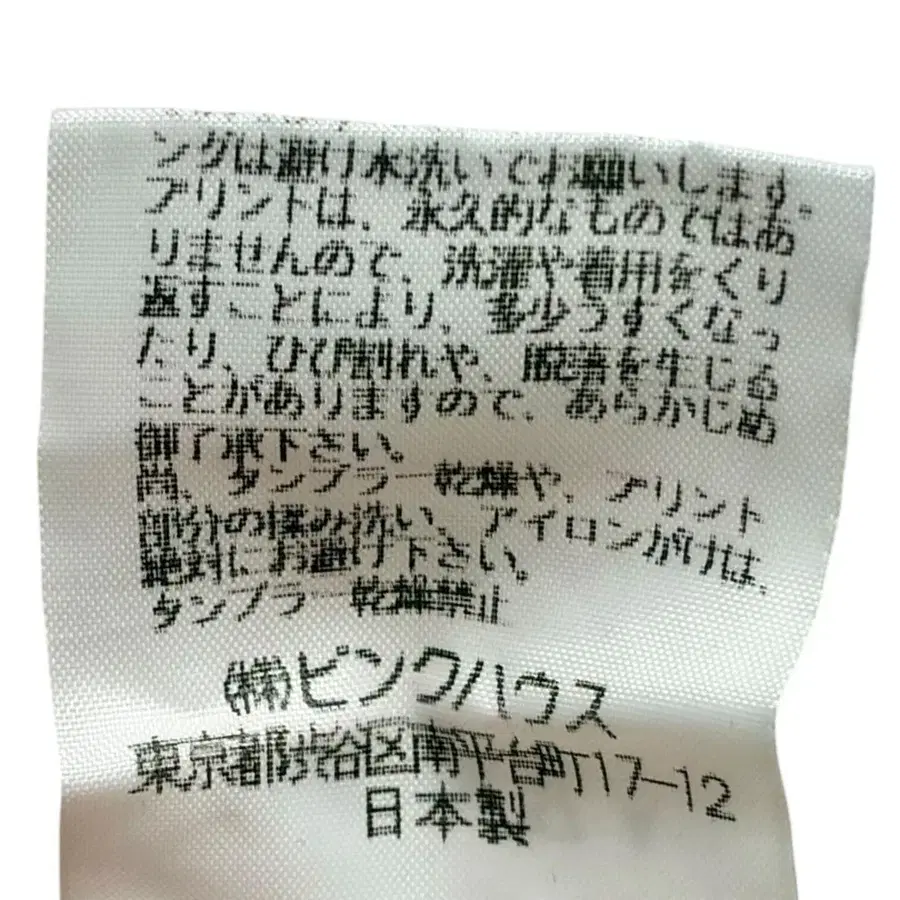 ングは避け水洗いでお願いします。
プリントは、永久的なものではあ
りませんので、洗濯や着用をくり
返すことにより、多少うすくなっ
たり、ひび割れや、脱落を生じる
ことがありますので、あらかじめ
御了承下さい。
尚、タンブラー乾燥や、プリント
部分の揉み洗い、アイロンがけは、
絶対にお避け下さい。
タンブラー乾燥禁止
(株)ピンクハウス
東京都渋谷区南平台町17-12
日本製